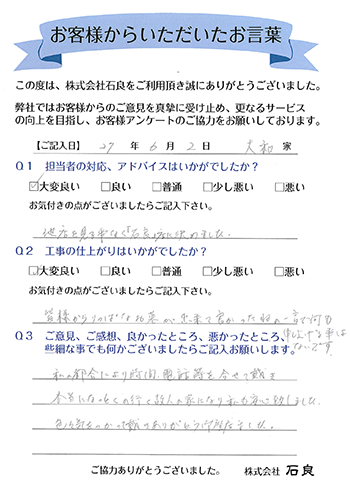 お客様からいただいたお言葉
この度は、株式会社石良をご利用頂き誠にありがとうございました。
弊社ではお客様からのご意見を真摯に受け止め、更なるサービス
の向上を目指し、お客様アンケートのご協力をお願いしております。
【ご記入日】 27 年 6 月 2 日 大和 家
Q1 担当者の対応、アドバイスはいかがでしたか?
☑大変良い □良い □普通 □少し悪い □悪い
お気付きの点がございましたらご記入下さい。
他店を見る事なく「石良」に決めました。
Q2 工事の仕上がりはいかがでしたか?
☑大変良い □良い □普通 □少し悪い □悪い
お気付きの点がございましたらご記入下さい。
皆様からりっぱなお墓が出来て良かったねの一言で何も
申し上げる事はないです
Q3 ご意見、ご感想、良かったところ、悪かったところ、
些細な事でも何かございましたらご記入お願いします。
私の都合により時間、電話等を合せて戴き
ご協力ありがとうございました。 株式会社 石良